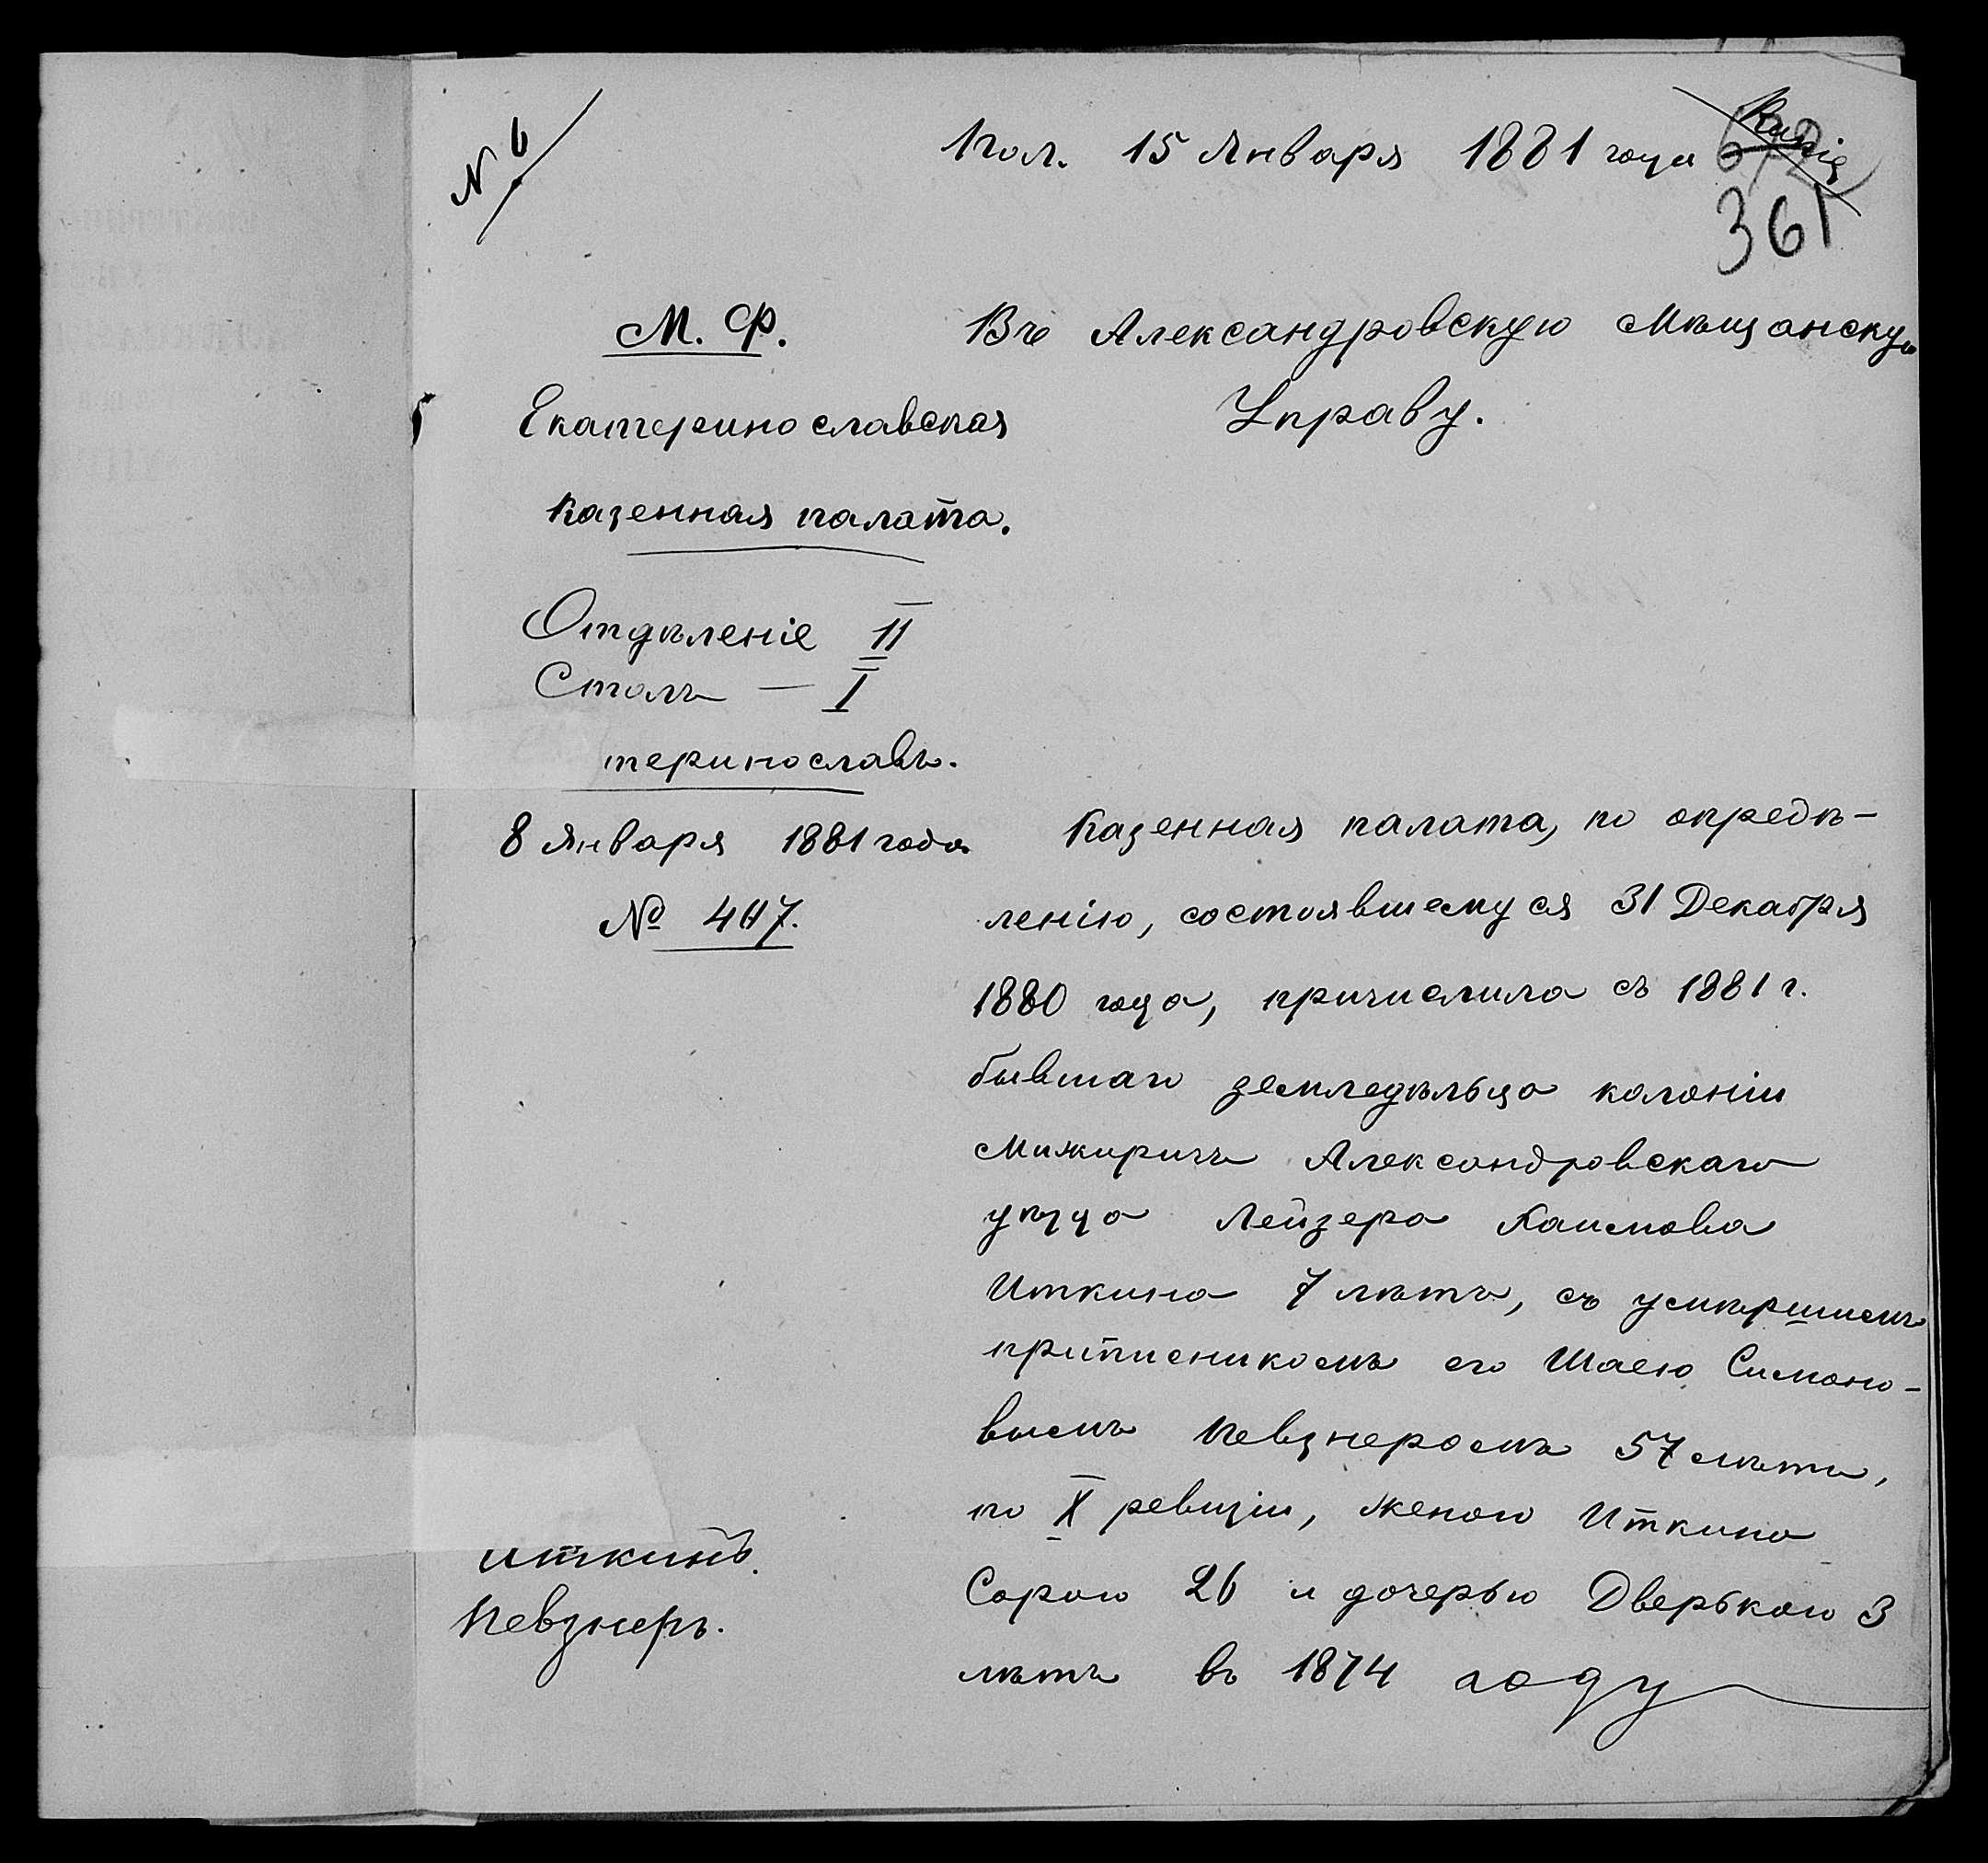 № 6
Пол. 15 Января 1881 года
361
М. Ф.
Екатеринославская
Казенная палата.
Отдѣленіе II
Столъ — I
теринославъ.
8 Января 1881 года
№ 407.
Въ Александровскую Мѣщанскую
Управу.
Казенная палата, по опредѣ-
ленію, состоявшемуся 31 Декабря
1880 года, причислила съ 1881 г.
бывшаго земледѣльца колоніи
Межиричъ Александровскаго
уѣзда Лейзера Хаимова
Иткина 7 лѣтъ, съ умершимъ
припісникомъ его Шаею Симоно-
вымъ Певзнеромъ 57 лѣтъ,
по X ревизіи, женою Иткина
Сорою 26 и дочерью Дверькою 3
лѣтъ въ 1874 году
Иткинъ.
Певзнеръ.